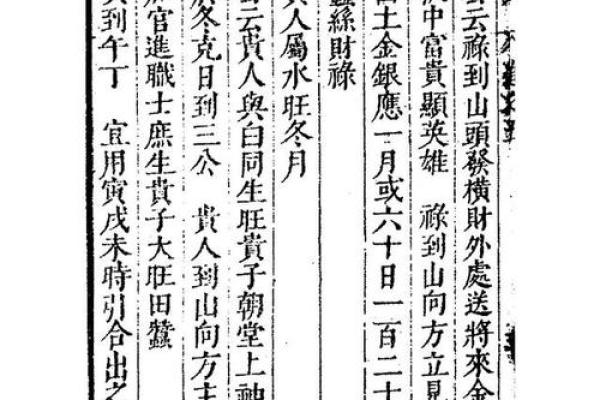 云祿到山頭發橫財外處送將來金
中富貴顯英雄　祿到山向方立見
土金銀應一月或六十日一百二十
蠶絲財祿
人屬水旺冬月
云貴人與白同生旺貴子朝堂上
冬克日到三公　貴人到山向方主
官進職士庶生貴子大旺田蠶
到午丁　宜用寅戌未時引合出之